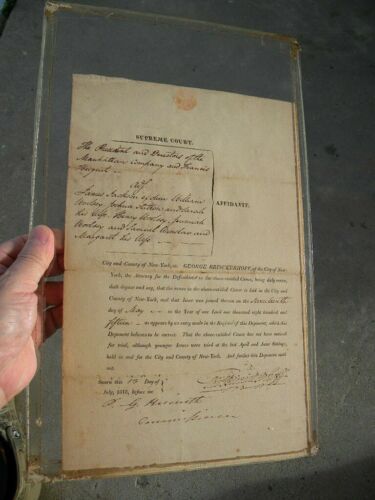 SUPREME COURT.
The President and Directors of the
Manhattan Company and Francis
ads
James Jackson ex dem William
Wosley, Joshua Sutton and Sarah
his Wife, Henry Wosley, Jeremiah
Wosley and Samuel and
Margaret his Wife
AFFIDAVIT.
City and County of New-York, ss. GEORGE BRINCKERHOFF, of the City of New-
York, the Attorney for the Defendants in the above-entitled Cause, being duly sworn,
doth depose and say, that the venue in the above-entitled Cause is laid in the City and
County of New-York, and that Issue was joined therein on the
day of May in the Year of our Lord one thousand eight hundred and
fifteen as appears by an entry made in the Register of this Deponent, which this
Deponent believes to be correct. That the above-entitled Cause was not noticed
for trial, although younger Issues were tried at the last April and June Sittings,
held in and for the City and County of New-York. And further this Deponent saith
not.
Sworn this 15 Day of
July, 1815, before me
Commissioner